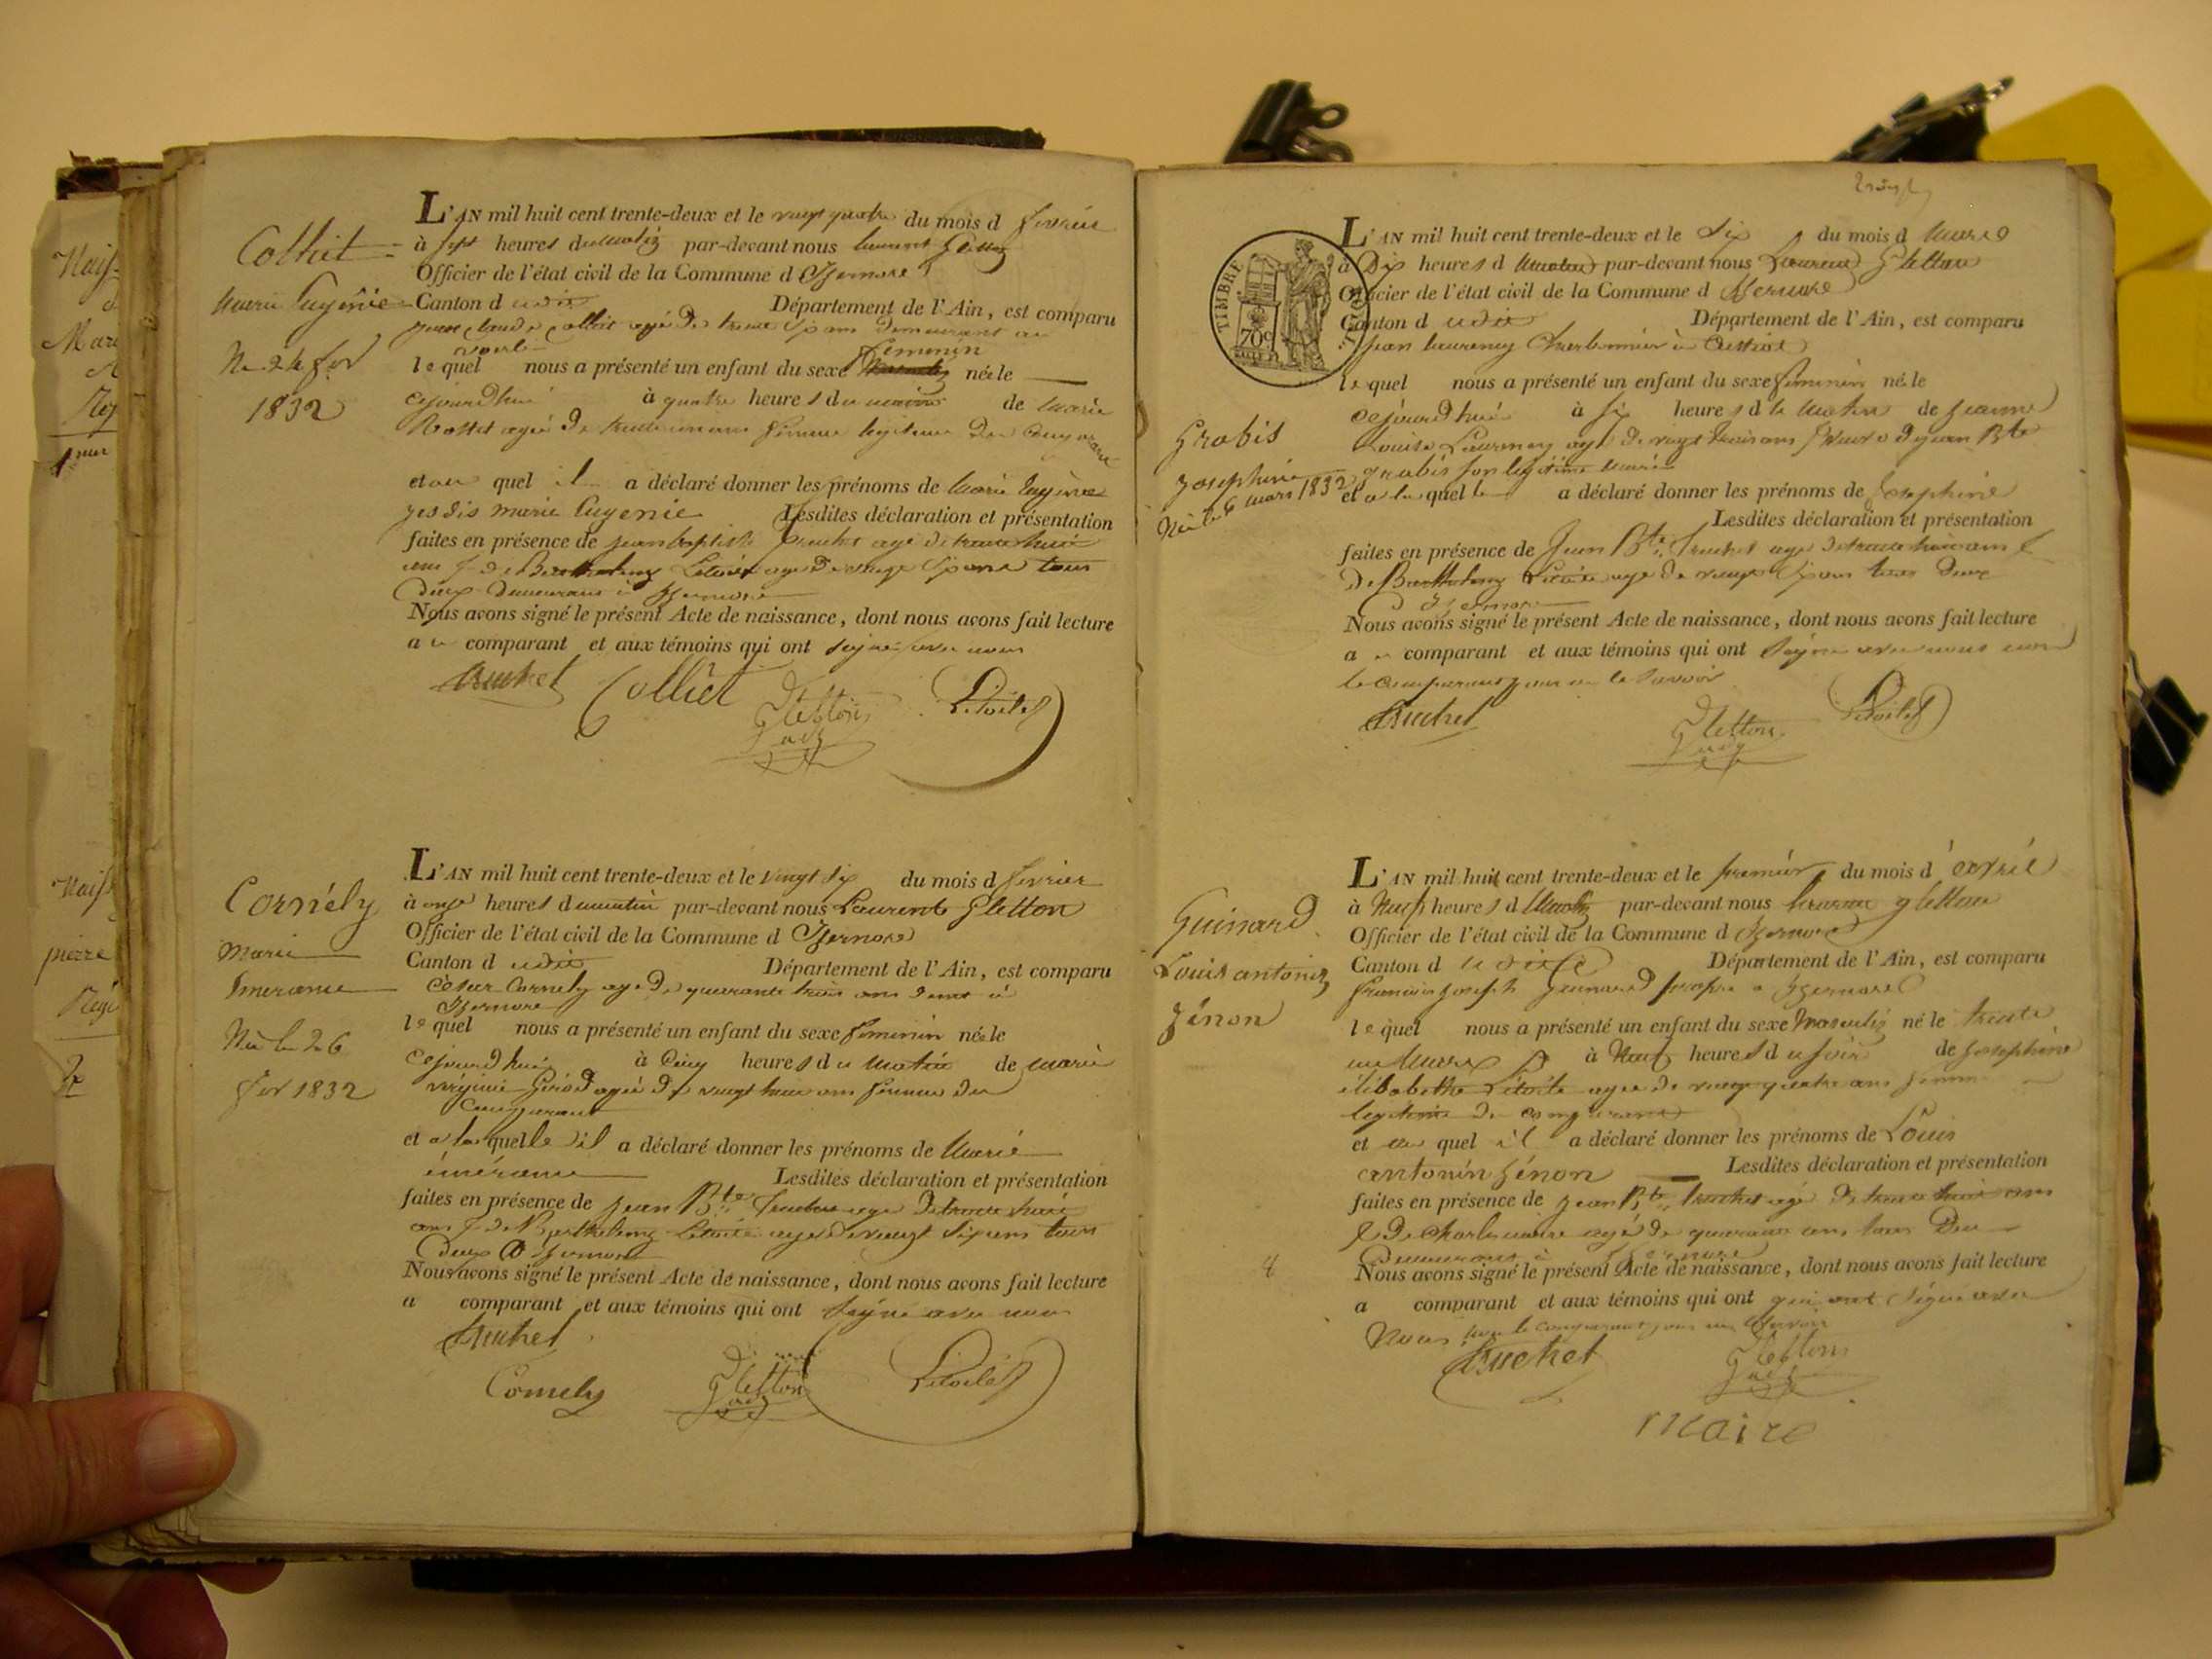 Naiss
Mari
Naiss
pierre
Colliet
Marie Eugenie
Née 24 fev
1832
L'AN mil huit cent trente-deux et le vingt quatre du mois d fevrier
à sept heures du matin par-devant nous laurent Gletton
Officier de l'état civil de la Commune d Izernore
Canton d udit Département de l'Ain, est comparu
jean claude colliet agé de trente ans demeurant au
féminin
lequel nous a présenté un enfant du sexe née le
cejourdhui à quatre heures du matin de marie
agée de trente un ans femme legitime du comparant
et au quel il a déclaré donner les prénoms de Marie Eugénie
marie Eugenie Lesdites déclaration et présentation
faites en présence de jean baptiste truchet agé de trente huit
ans & de Barthelemy Létoile agé de vingt six ans tous
deux demeurans à Izernore
Nous avons signé le présent Acte de naissance, dont nous avons fait lecture
au comparant et aux témoins qui ont signé avec nous
Truchet Colliet Gletton Létoile
adj
Cornély
Marie
Née le 26
fev 1832
L'AN mil huit cent trente-deux et le vingt six du mois d fevrier
à onze heures du matin par-devant nous Laurent Gletton
Officier de l'état civil de la Commune d Izernore
Canton d udit Département de l'Ain, est comparu
Cornely agé de quarante trois ans demt à
Izernore
lequel nous a présenté un enfant du sexe feminin née le
cejourdhui à cinq heures du matin de marie
virginie agée de vingt huit ans femme du
comparant
et a la quelle il a déclaré donner les prénoms de Marie
Lesdites déclaration et présentation
faites en présence de jean Bte Truchet agé de trente huit
ans & de Barthelemy Létoile agé de vingt six ans tous
deux à Izernore
Nous avons signé le présent Acte de naissance, dont nous avons fait lecture
a comparant et aux témoins qui ont signé avec nous
Truchet
Cornely Gletton Létoile
adj
TIMBRE ROYAL
70c
L'AN mil huit cent trente-deux et le six du mois d Mars
à Dix heures d Matin par-devant nous Laurent Gletton
Officier de l'état civil de la Commune d Izernore
Canton d udit Département de l'Ain, est comparu
jean laurency Charbonnier à
lequel nous a présenté un enfant du sexe féminin née le
cejourdhui à six heures du Matin de jeanne
Louise Laurency agé de vingt trois ans de jean Bte
grabis son légitime mari
et a la quelle a déclaré donner les prénoms de Josephine
Lesdites déclaration et présentation
faites en présence de Jean Bte Truchet agé de trente huit ans &
De Barthelemy Létoile agé de vingt six ans tous deux
à Izernore
Nous avons signé le présent Acte de naissance, dont nous avons fait lecture
au comparant et aux témoins qui ont signé avec nous non
le comparant pour ne le savoir
Truchet Gletton Létoile
adj
Grabis
Josephine
Née le 6 mars 1832
Guinard
Louis antonin
Zénon
L'AN mil huit cent trente-deux et le premier du mois d'avril
à Neuf heures d Matin par-devant nous laurent gletton
Officier de l'état civil de la Commune d Izernore
Canton d udit Département de l'Ain, est comparu
françois joseph guinard à Izernore
lequel nous a présenté un enfant du sexe masculin né le trente
un Mars à Neuf heures du soir de Josephine
élisabeth Létoile agée de vingt quatre ans femme
legitime du comparant
et au quel il a déclaré donner les prénoms de Louis
antonin Zénon Lesdites déclaration et présentation
faites en présence de jean Bte truchet agé de trente huit ans
& De Charles maire agé de quarante ans tous deux
demeurans à Izernore
Nous avons signé le présent Acte de naissance, dont nous avons fait lecture
a comparant et aux témoins qui ont qui ont signé avec
Nous non le comparant pour ne le savoir
Truchet Gletton
adj
maire